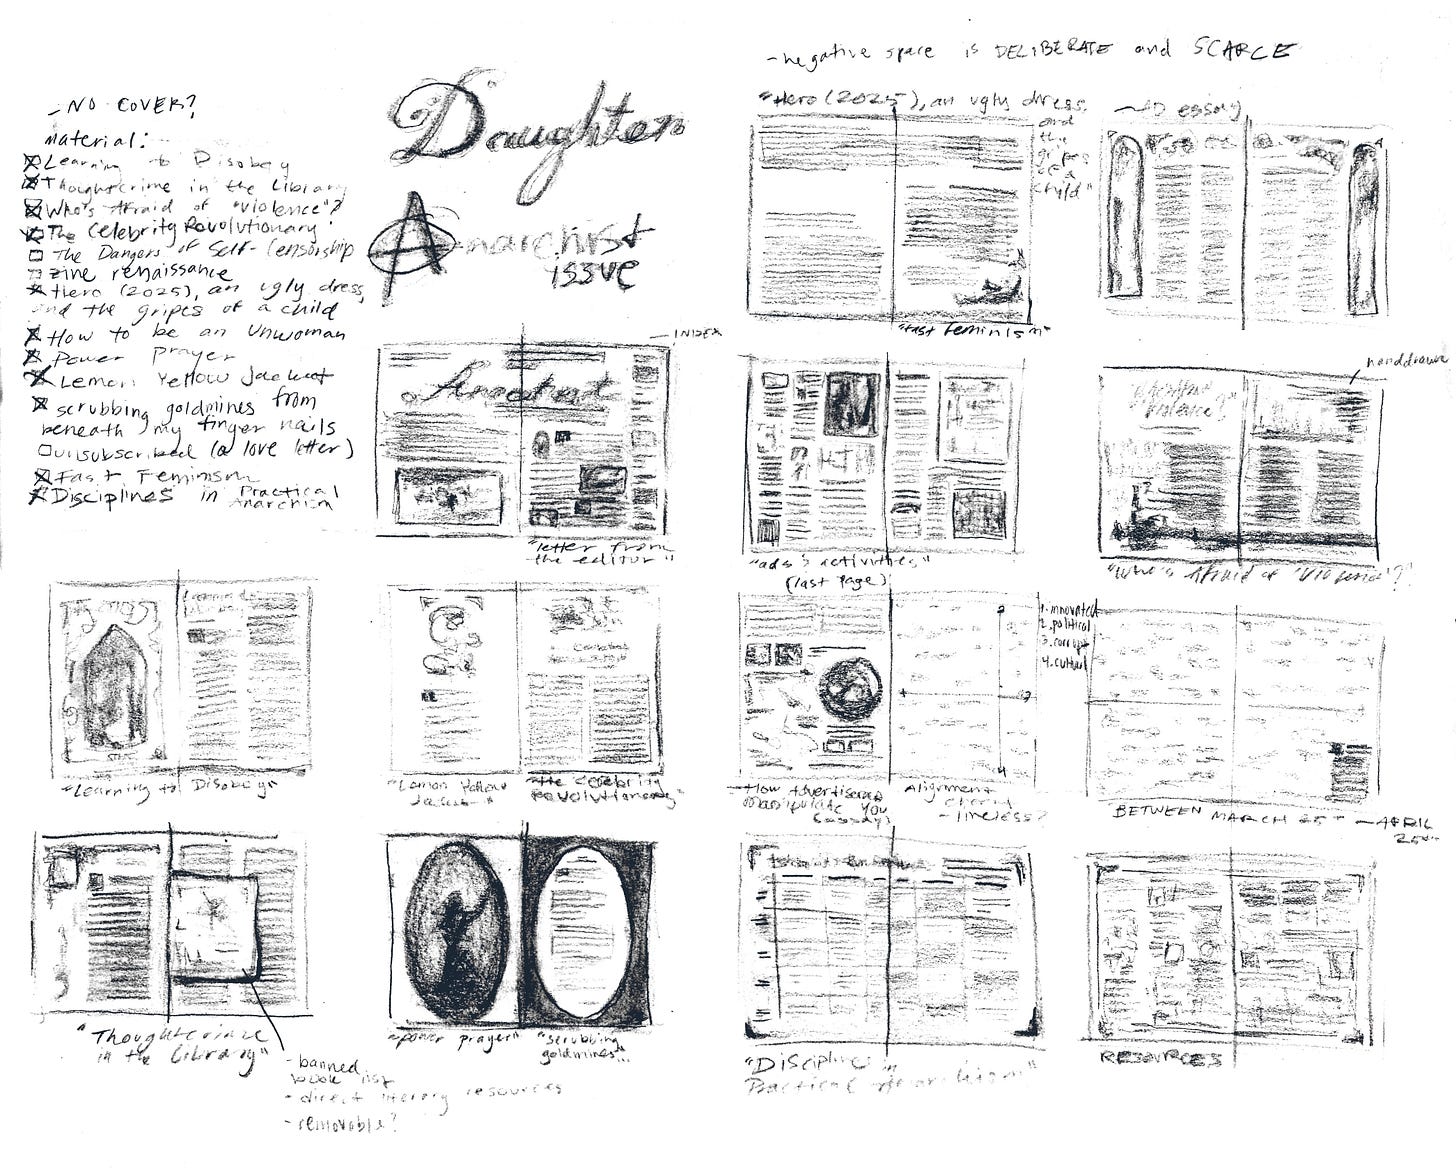 - NO COVER?
material:
Learning to Disobey
Thoughtcrime in the Library
Who's Afraid of "Violence"?
The Celebrity Revolutionary
The Dangers of Self-Censorship
zine renaissance
Hero (2025), an ugly dress,
and the gripes of a child
How to be an Unwoman
Power prayer
Lemon Yellow Jacket
scrubbing goldmines from
beneath my finger nails
unsubscribed (a love letter)
Fast Feminism
Disciplines in Practical
Anarchism
Daughter
Anarchist
ISSUE
- negative space is DELIBERATE and SCARCE
"Hero (2025), an ugly dress,
and
the
gripes
of a
child"
"fast feminism"
essay
INDEX
"letter from
the editor"
"ads & activities"
(last page)
handdrawn
"Who's Afraid of 'Violence'?"
"Learning to Disobey"
"Lemon Yellow
Jacket"
"the celebrity
revolutionary"
How Advertisers
Manipulate You
(essay)
Alignment
chart
- timeless?
1. innovated
2. political
3. corrupt
4. cultural
BETWEEN MARCH 25TH - APRIL
25TH
"Thoughtcrime
in the Library"
- banned
book list
- direct literary resources
- removable?
"power prayer"
"scrubbing
goldmines..."
"Disciplines in
Practical Anarchism"
RESOURCES